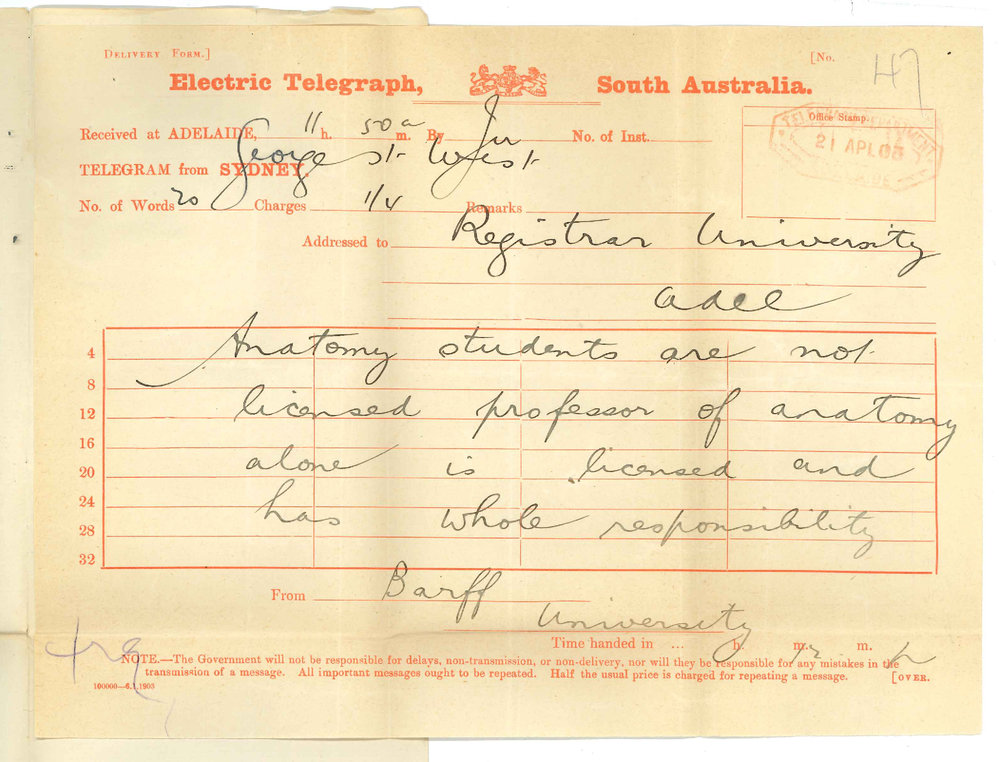 DELIVERY FORM.] [No. 47
Electric Telegraph, South Australia.
Office Stamp.
Received at ADELAIDE, 11 h. 50 a m. By No. of Inst.
21 APL 03
TELEGRAM from SYDNEY, George St West
No. of Words 20 Charges 1/4 Remarks
Addressed to Registrar University
Adel
4 Anatomy students are not
8
12 licensed professor of anatomy
16
20 alone is licensed and
24 has whole responsibility
28
32
From Barff
University
Time handed in ... h. m. m.
NOTE.—The Government will not be responsible for delays, non-transmission, or non-delivery, nor will they be responsible for any mistakes in the
transmission of a message. All important messages ought to be repeated. Half the usual price is charged for repeating a message. [OVER.
100000—6.1.1903